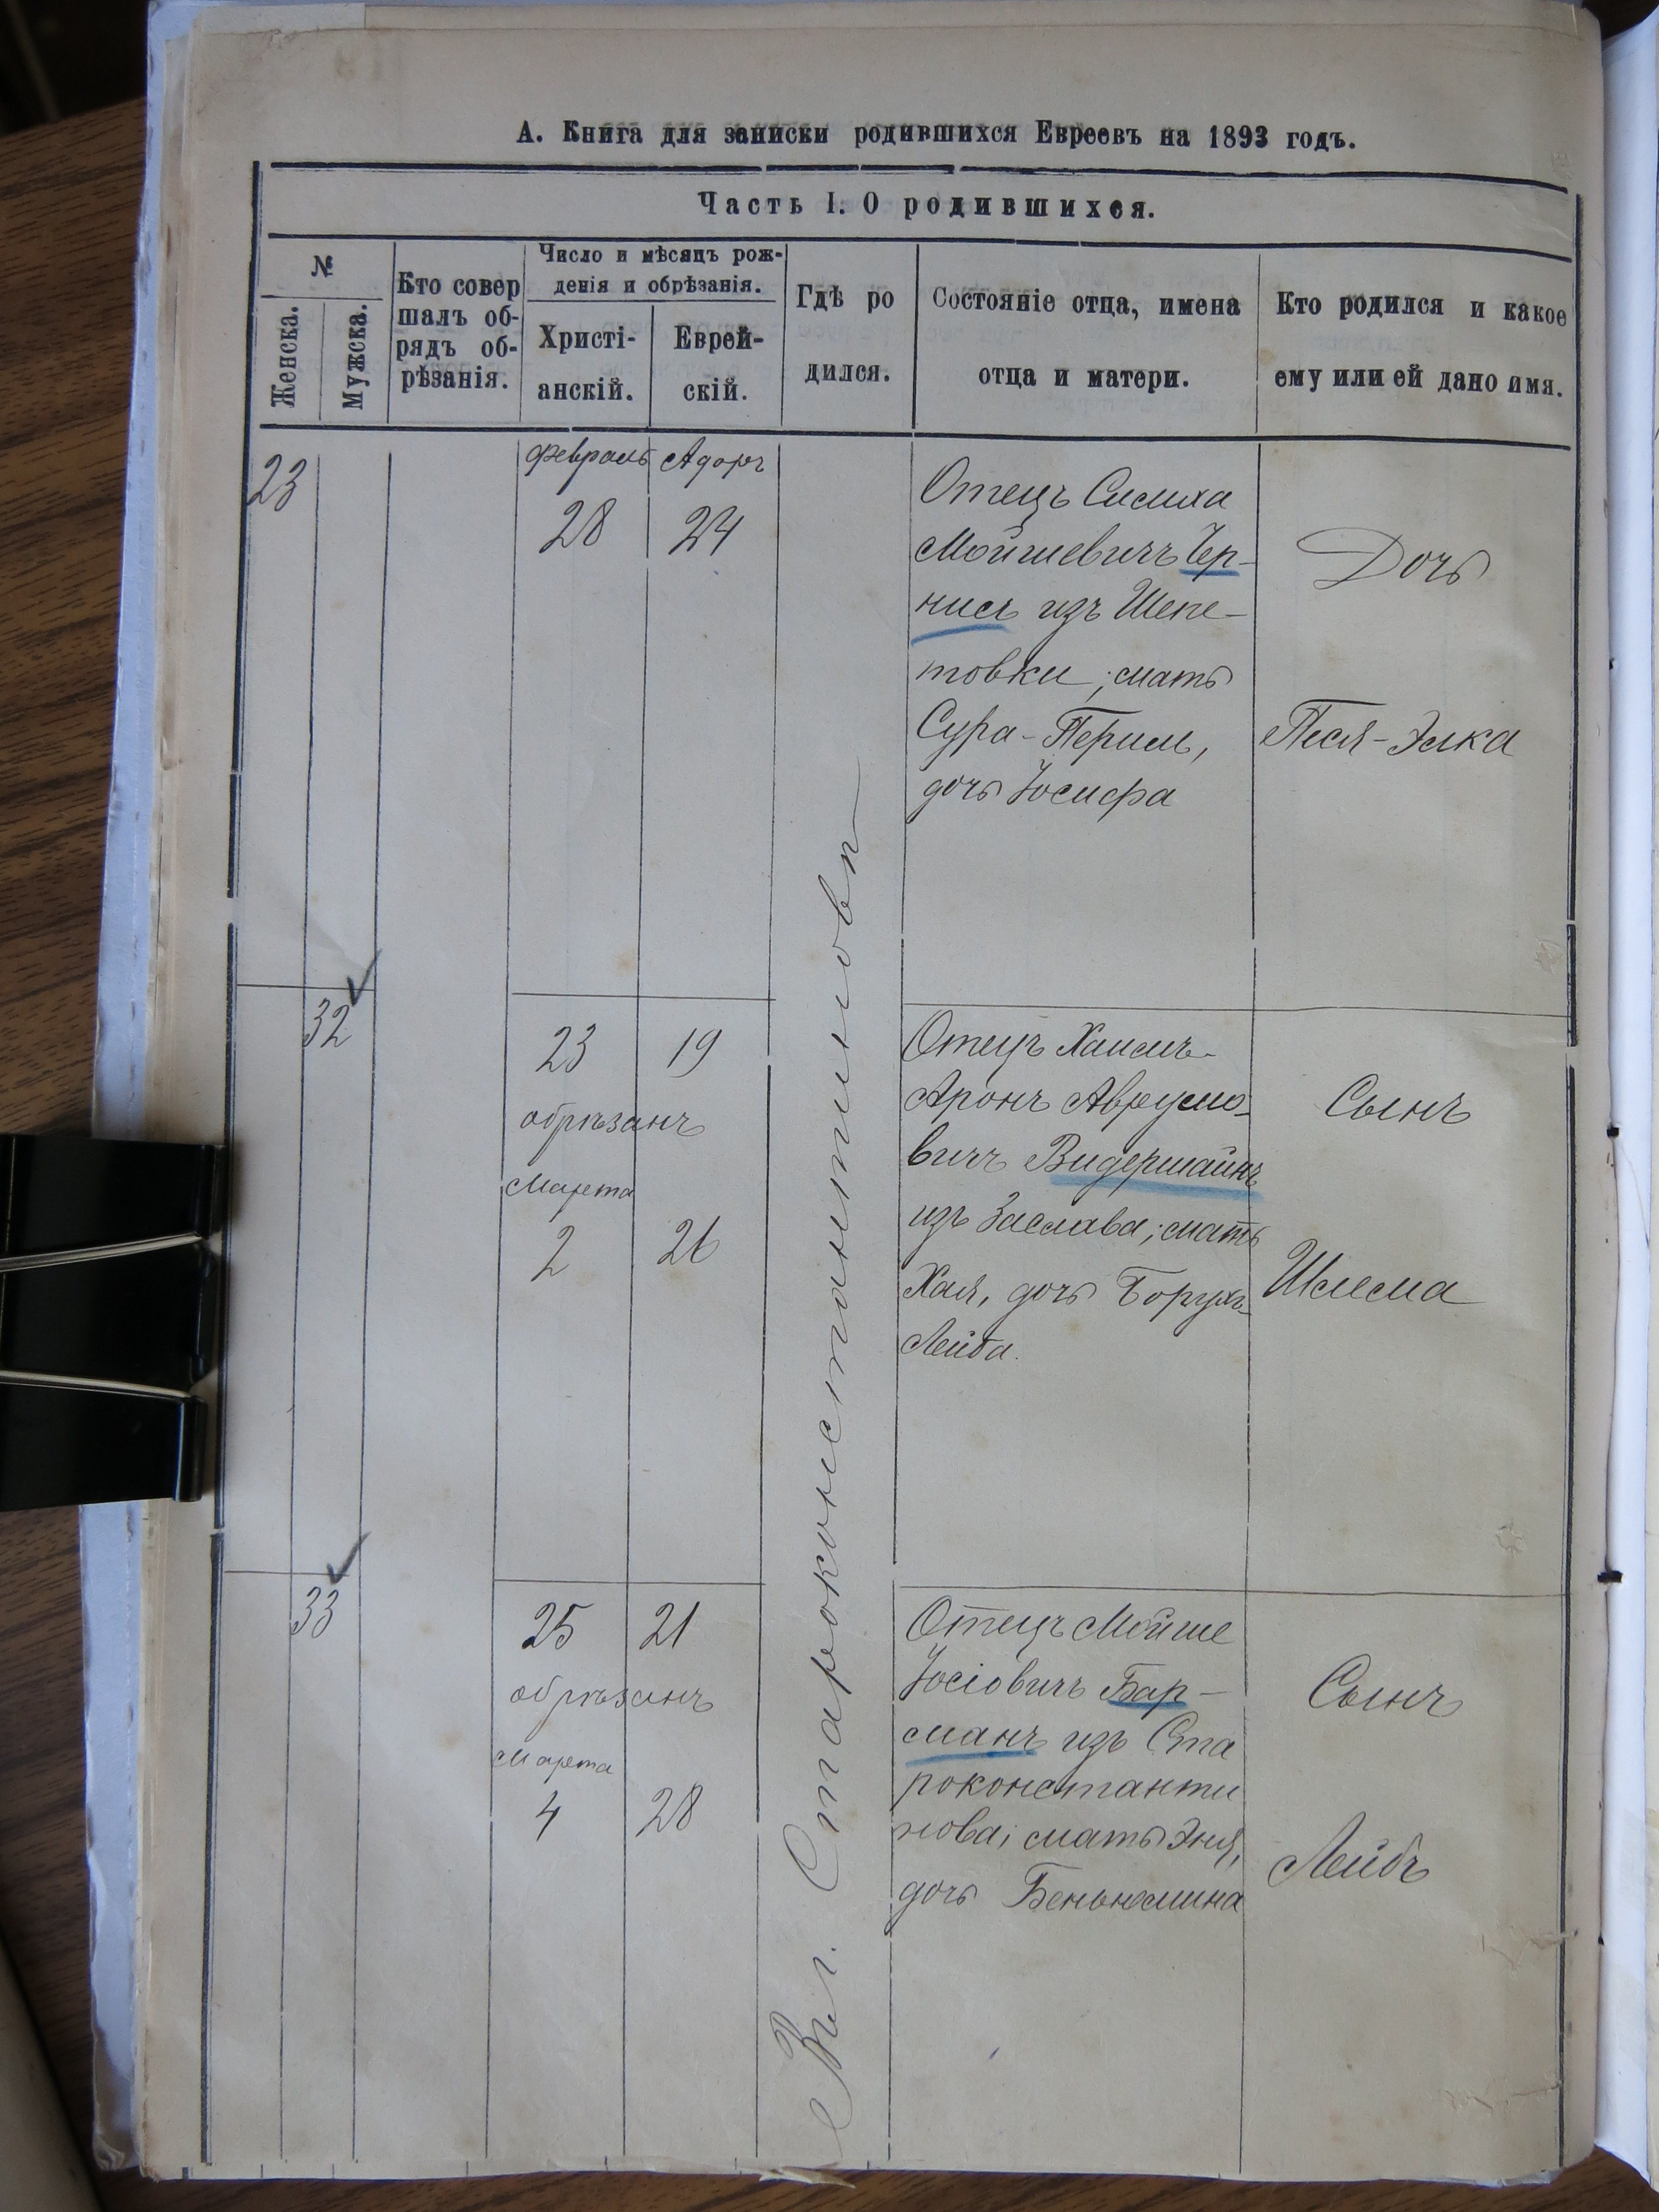 А. Книга для записки родившихся Евреевъ на 1893 годъ.
Часть I. О родившихся.
№
Женска.
Мужска.
Кто совер
шалъ об-
рядъ об-
рѣзанія.
Число и мѣсяцъ рож-
денія и обрѣзанія.
Христі-
анскій.
Еврей-
скій.
Гдѣ ро
дился.
Состояніе отца, имена
отца и матери.
Кто родился и какое
ему или ей дано имя.
Февраль Адаръ
23
28 24
Отецъ Симха
Мойшевичъ Чер-
нисъ изъ Шепе-
товки; мать
Сура-Перель,
дочь Іосифа
Дочь
Песя-Элка
Староконстантиновъ
32
23 19
обрѣзанъ
Марта
2 26
Отецъ Хаимъ-
Аронъ Аврумо-
вичъ Видершайнъ
изъ Заслава; мать
Хая, дочь Борухъ-
Лейба.
Сынъ
Шлема
33
25 21
обрѣзанъ
Марта
4 28
Отецъ Мойше
Іосіовичъ Бар-
манъ изъ Ста
роконстанти
нова; мать Эня,
дочь Беньюмина
Сынъ
Лейбъ